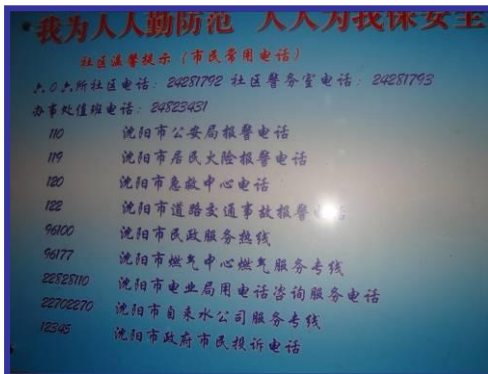 我为人人勤防范 人人为我保安全
社区温馨提示（市民常用电话）
六〇六所社区电话：24281792 社区警务室电话：24281793
办事处值班电话：24823431
110 沈阳市公安局报警电话
119 沈阳市居民火险报警电话
120 沈阳市急救中心电话
122 沈阳市道路交通事故报警电话
96100 沈阳市民政服务热线
96177 沈阳市燃气中心燃气服务专线
22828110 沈阳市电业局用电话咨询服务电话
22702270 沈阳市自来水公司服务专线
12345 沈阳市政府市民投诉电话